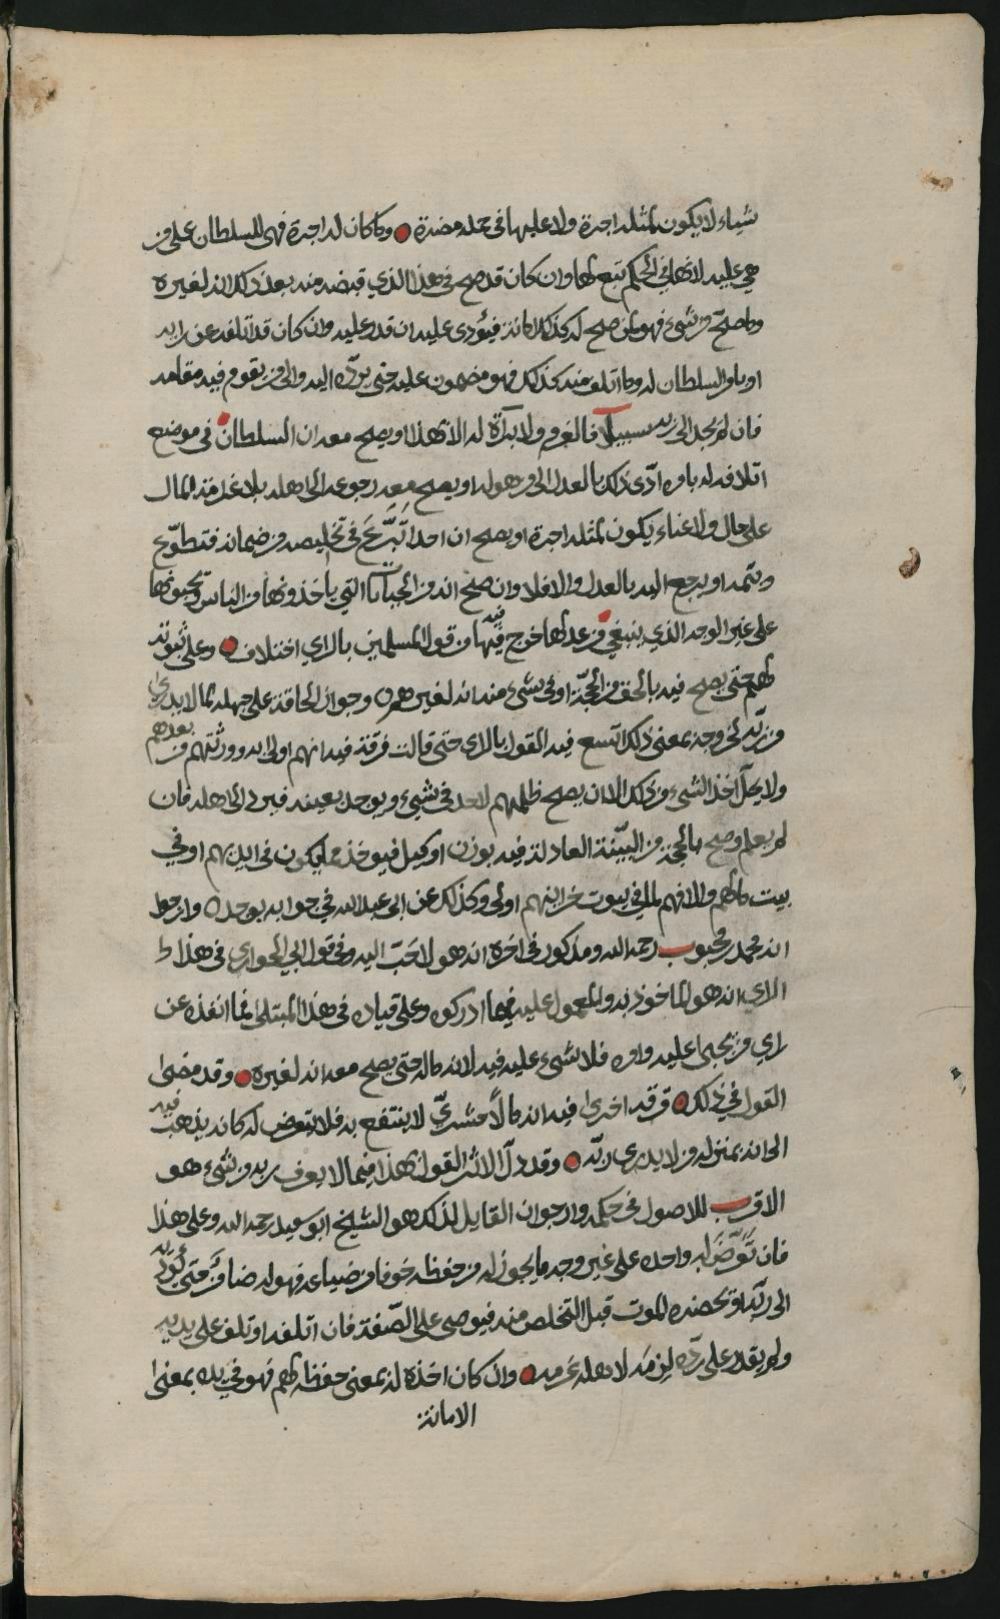 شياء لا يكون لمثله اجرة ولا عليها في حمله مضرة وما كان له اجرة فهي للسلطان على من
هي عليه لانها في الحكم تبع لها وان كان قد صح في هذا الذي قبضه منه بعد ذلك انه لغيره
وما صح من شيء فهو لمن صح له كذلك امانة فيؤدى عليه ان قدر عليه وان كان قد اتلفه عن رايه
او بامر السلطان له وما اتلف منه كذلك فهو مضمون عليه حتى يرده اليه والى من يقوم فيه مقامه
فان لم يجد الى رده سبيلا فالغرم ولا براة له الا بهذا او يصح معه ان السلطان في موضع
اتلافه له بامره ادى ذلك بالعدل الى من هو له او يصح معه رجوعه الى اهله بلا غرامة لمال
على حال ولا عناء يكون لمثله اجرة او يصح ان احدا تبرع في تخليصه من ضمانه فتطوع
وتمه او يرجع اليه بالعدل والا فلا وان صح انه من الجبايات التي ياخذونها من الناس ويجبونها
على غير الوجه الذي ينبغي من عدلها خرج فيه فيها من قول المسلمين بالراي اختلاف وعلى ثبوته
لهم حتى يصح فيه بالحق من الحجة او في شيء منه انه لغيرهم وجواز الحاقة على جهله لما لا يدرى
من ربه في وجه بمعنى ذلك اتسع فيه القول بالراي حتى قالت فرقة فيه انهم اولى به وورثتهم من بعدهم
ولا يحل اخذ الشيء من ذلك الا ان يصح ظلمهم لاحد في شيء ويوجد بعينه فيرد الى اهله فان
لم يعلم وصح بالحجة من البينة العادلة فيه بوزن او كيل فيوخذ مما يكون في ايديهم او في
بيت مالهم والا فهم لما في بيوت خزاينهم اولى وكذلك عن ابي عبد الله في جوابه يوجد وارجوا
انه محمد بن محبوب رحمه الله ومذكور في اخره انه هو الاحب اليه وفي قول ابي الحواري في هذا
الراي انه هو الماخوذ به والمعمول عليه فيما ادركوه وعلى قياده في هذا المبتلى فما انفذه عن
راي من يجبي عليه وامره فلا شيء عليه فيه لانه ماله حتى يصح معه انه لغيره وقد مضى
القول في ذلك فرقة اخرى فيه انه مالا مشتري لا ينتفع به فلا يتعرض له كانه يذهب فيه
الى انه بمنزلة من لا يدرى ربه وقد دل الاثر القول بهذا فيما لا يعرف ربه من شيء هو
الاقرب للاصول في حكمه وارجو ان القايل لذلك هو الشيخ ابو سعيد رحمه الله وعلى هذا
فان تعرض له واحده على غير وجه ما يجوز له من حفظه خوفا من ضياعه فهو له ضامن حتى يؤديه
الى ربه او تحضره الموت قبل التخلص منه فيوصي على الصفة فان اتلفه او تلف على يديه
ولم يقدر على رده لزمه لاهله غرمه وان كان اخذه له بمعنى حفظه لهم فهو في يده بمعنى
الامانة